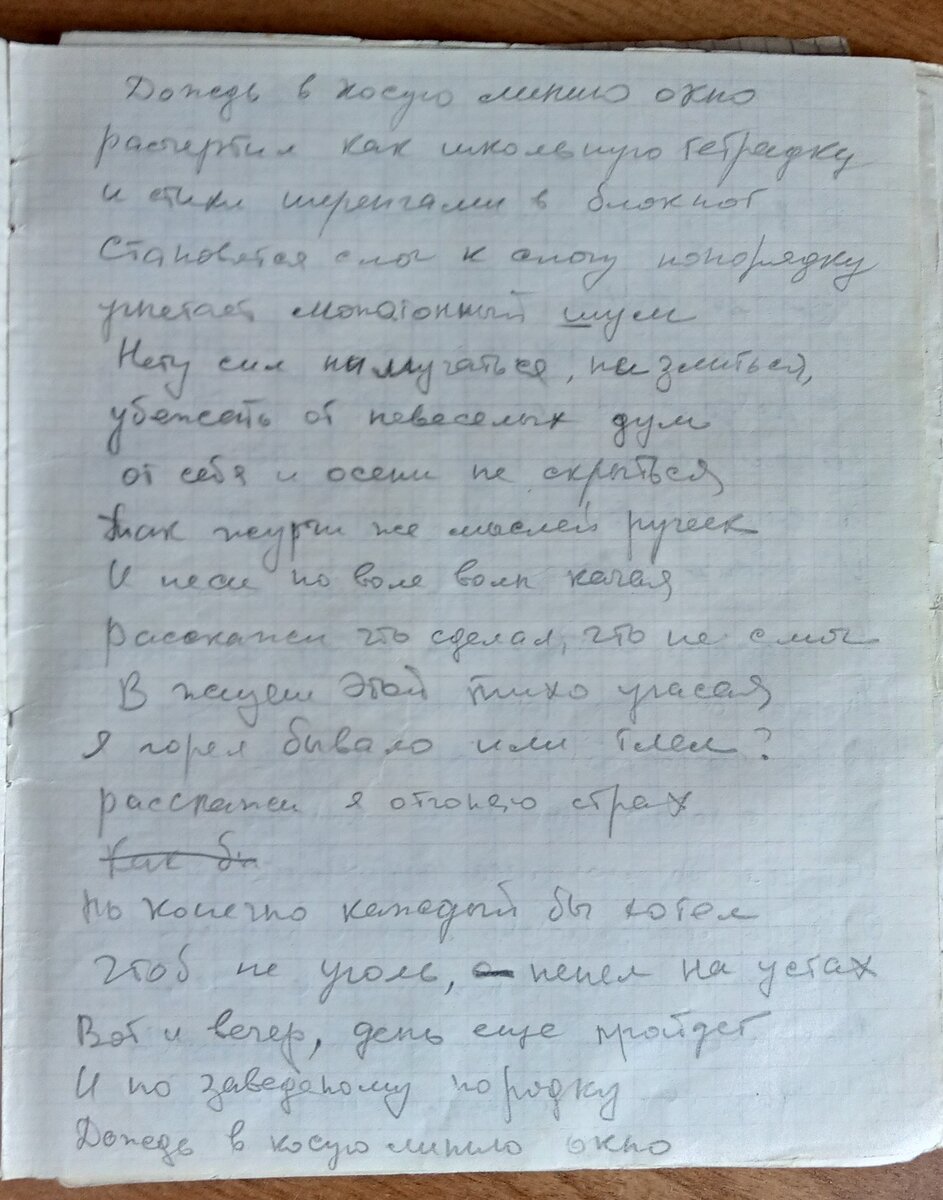 Дождь в косую линию окно
расчертил как школьную тетрадку
и стихи шеренгами в блокнот
Становятся слог к слогу попорядку
угнетает монотонный шум
Нету сил ни мучаться, ни злиться,
убежать от невеселых дум
от себя и осени не скрыться
Так журчи же мыслей ручеек
И неси по воле волн качая
Расскажи что сделал, что не смог
В жизни этой тихо угасая
Я горел бывало или тлел?
расскажи я отгоняю страх
Как бы
Но конечно каждый бы хотел
Чтоб не уголь, пепел на устах
Вот и вечер, день еще пройдет
И по заведеному порядку
Дождь в косую линию окно